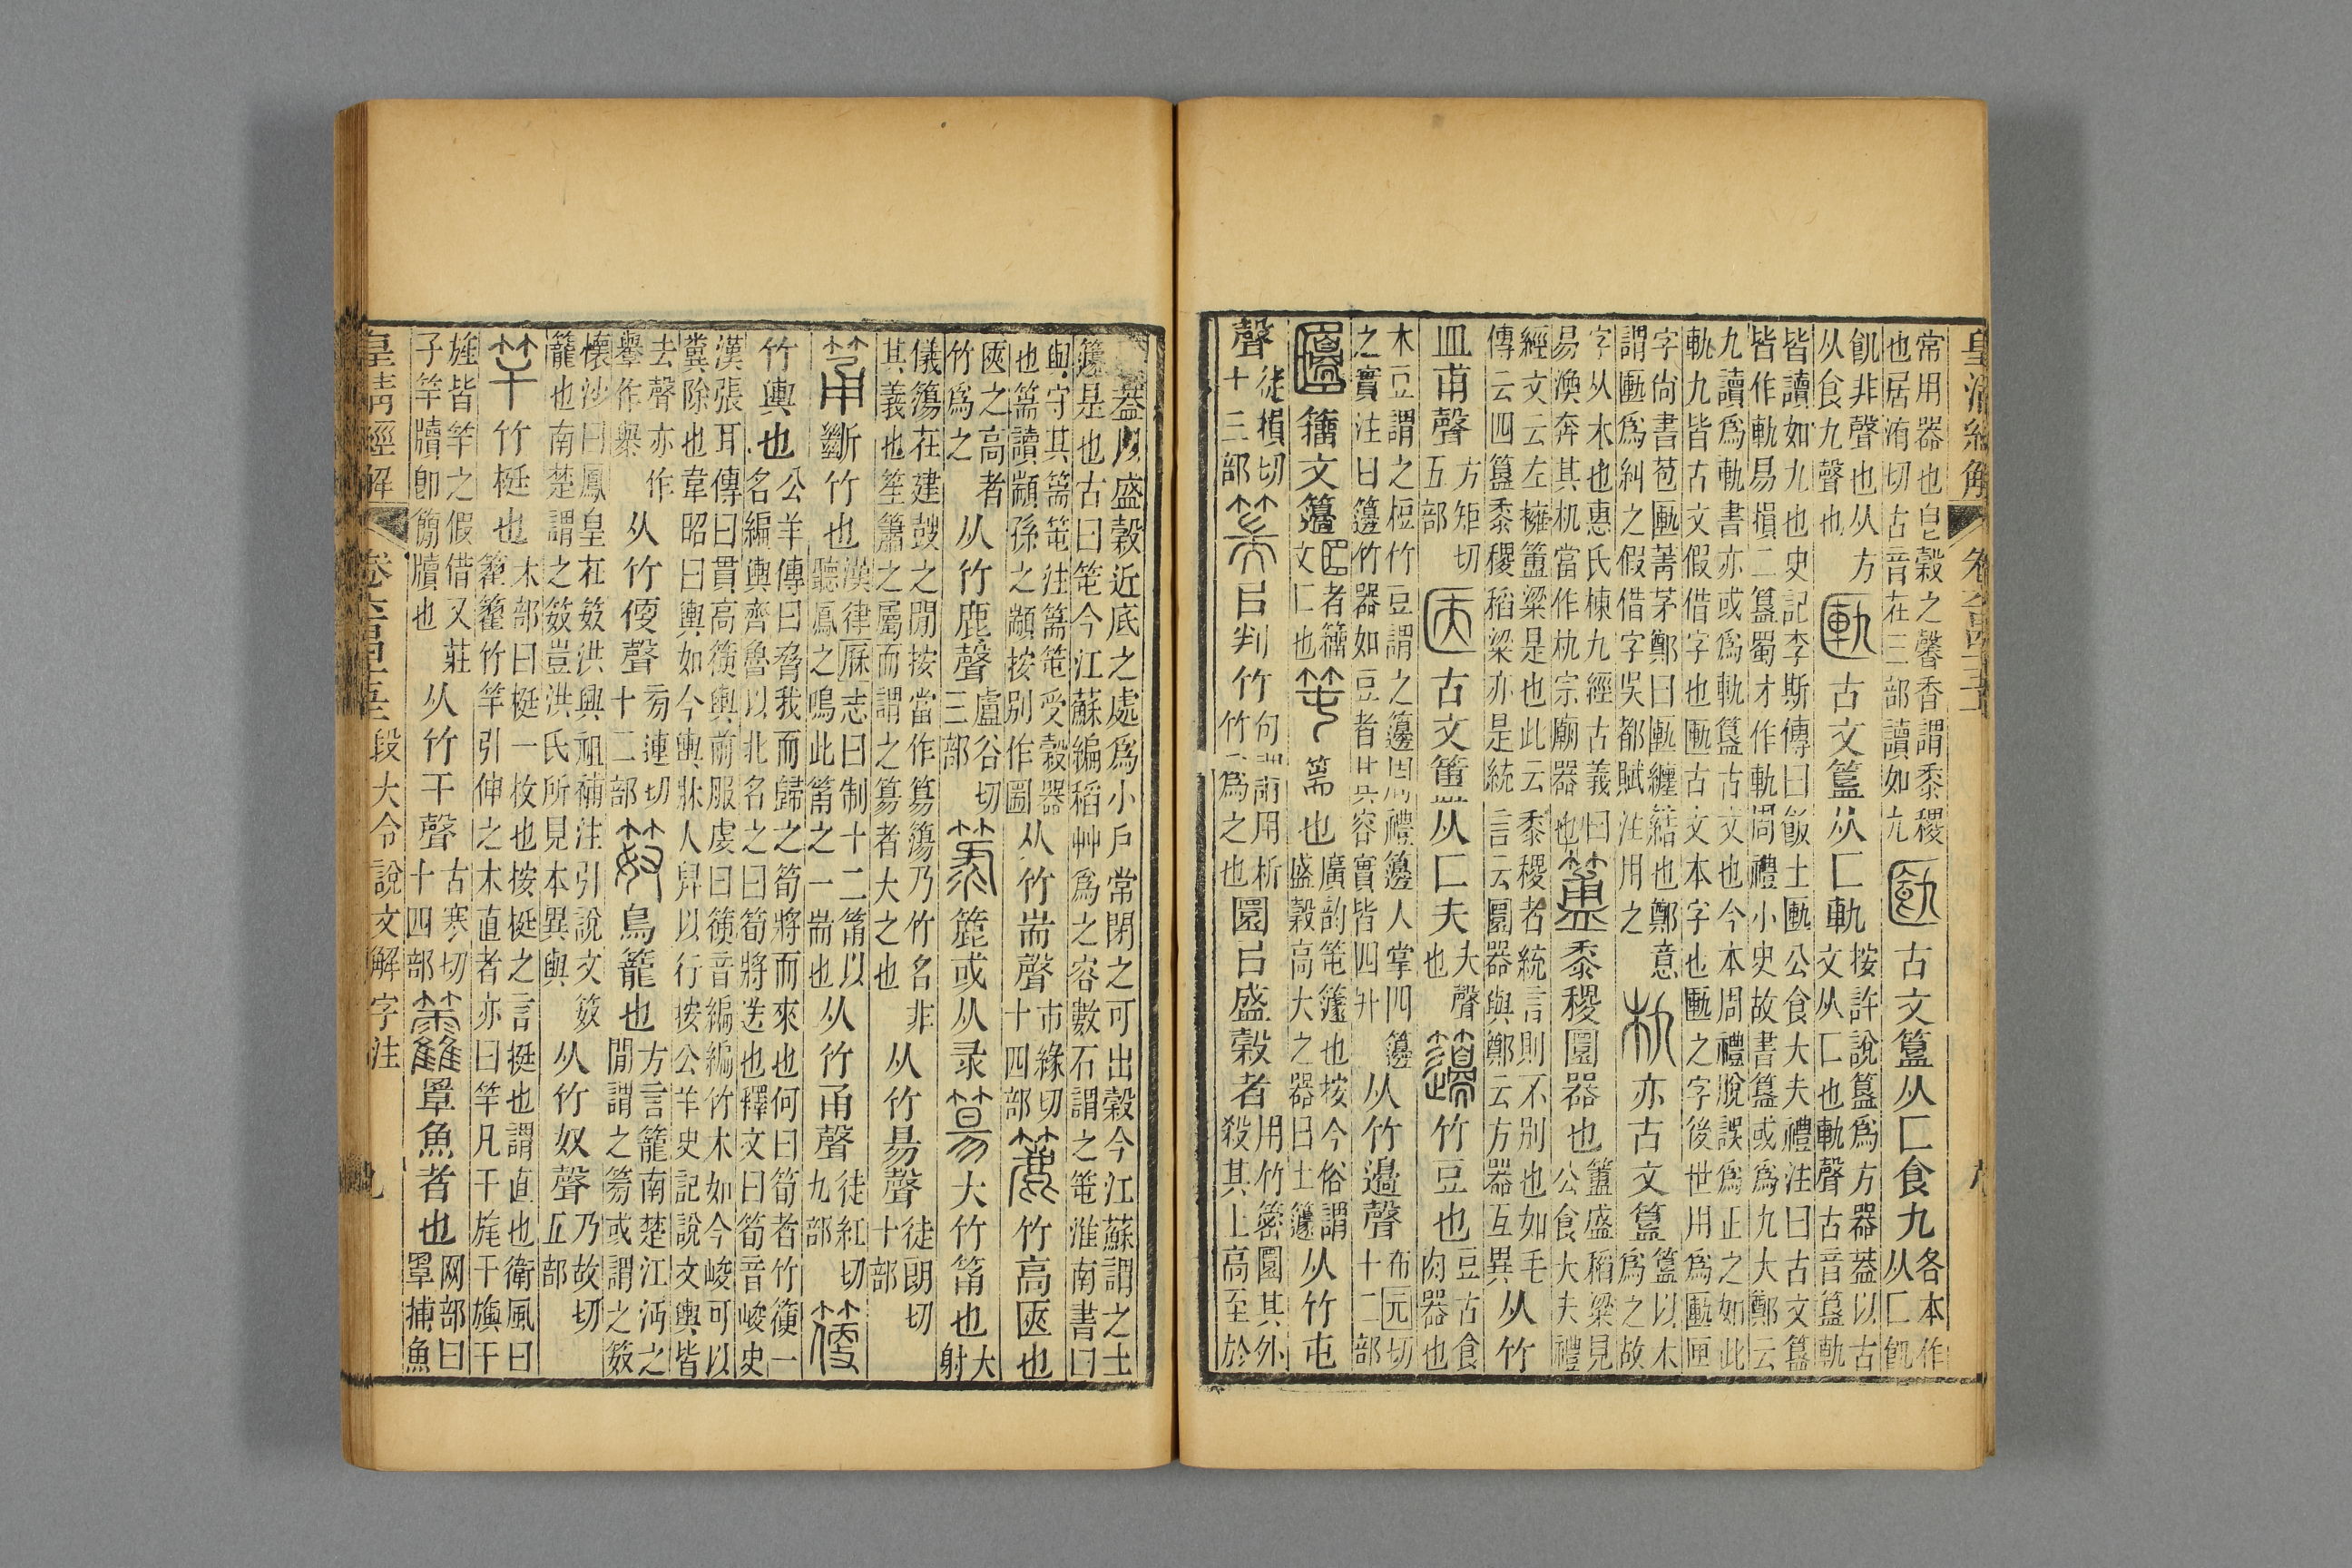 常用器也皀穀之馨香謂黍稷也居洧切古音在三部讀如九 古文簋从匚食九各本作从匚飢
飢非聲也从方从食九聲也 古文簋从匚軌按許說簋爲方器葢以古文从匚也軌聲古音簋軌
皆讀如九也史記李斯傳曰飯土匭公食大夫禮注曰古文簋
皆作軌易損二簋蜀才作軌周禮小史故書簋或爲九大鄭云
九讀爲軌書亦或爲軌簋古文也今本周禮脫誤爲正之如此
軌九皆古文假借字也匭古文本字也匭之字後世用爲匭匣
字尙書苞匭菁茅鄭曰匭纏結也鄭意謂匭爲糾之假借字吳都賦注用之 朹亦古文簋簋以木爲之故
字从木也惠氏棟九經古義曰易渙奔其机當作朹宗廟器也 簠黍稷圜器也簠盛稻梁見公食大夫禮
經文云左擁簠粱是也此云黍稷者統言則不別也如毛傳云四簋黍稷稻粱亦是統言云圜器與鄭云方器互異 从竹
皿甫聲方矩切五部 古文簠从匚夫夫聲也 籩竹豆也豆古食肉器也
木豆謂之梪竹豆謂之籩周禮籩人掌四籩之實注曰籩竹器如豆者其容實皆四升 从竹邊聲布元切十二部
籒文籩匚者籒文匚也 𥫱篅也廣韵𥫱籧也按今俗謂盛穀高大之器曰土籧 从竹屯
聲徒損切十三部 篅㠯判竹圜㠯盛穀者用竹密圜其外殺其上高至於
葢以盛穀近底之處爲小戶常閉之可出穀今江蘇謂之土
籧是也古曰𥫱今江蘇編稻艸爲之容數石謂之𥫱淮南書曰
與守其篅𥫱注篅𥫱受穀器也篅讀顓孫之顓按別作圌 从竹耑聲市緣切十四部 簏竹高匧也
匧之高者竹爲之 从竹鹿聲盧谷切三部 簶簏或从录 簜大竹筩也大射
儀簜在建鼓之閒按當作簜簜乃竹名非其義也笙簫之屬而謂之簜者大之也 从竹昜聲徒朗切十部
筩斷竹也漢律厤志曰制十二筩以聽鳳之鳴此筩之一耑也 从竹甬聲徒紅切九部 箯
竹輿也公羊傳曰脅我而歸之筍將而來也何曰筍者竹箯一名編輿齊魯以北名之曰筍將送也釋文曰筍音峻史
漢張耳傳曰貫高箯輿前服虔曰箯音編編竹木如今峻可以
糞除也韋昭曰輿如今輿牀人舁以行按公羊史記說文輿皆
去聲亦作轝作舉 从竹便聲㫄連切十二部 笯鳥籠也方言籠南楚江沔之閒謂之篣或謂之笯
懷沙曰鳳皇在笯洪興祖補注引說文笯籠也南楚謂之笯豈洪氏所見本異與 从竹奴聲乃故切五部
竿竹梃也木部曰梃一枚也按梃之言挺也謂直也衞風曰籊籊竹竿引伸之木直者亦曰竿凡干旄干旟干
旌皆竿之假借又莊子竿牘卽𥳑牘也 从竹干聲古寒切十四部 籱罩魚者也网部曰罩捕魚
皇清經解 卷六百四十五 段大令說文解字注 九